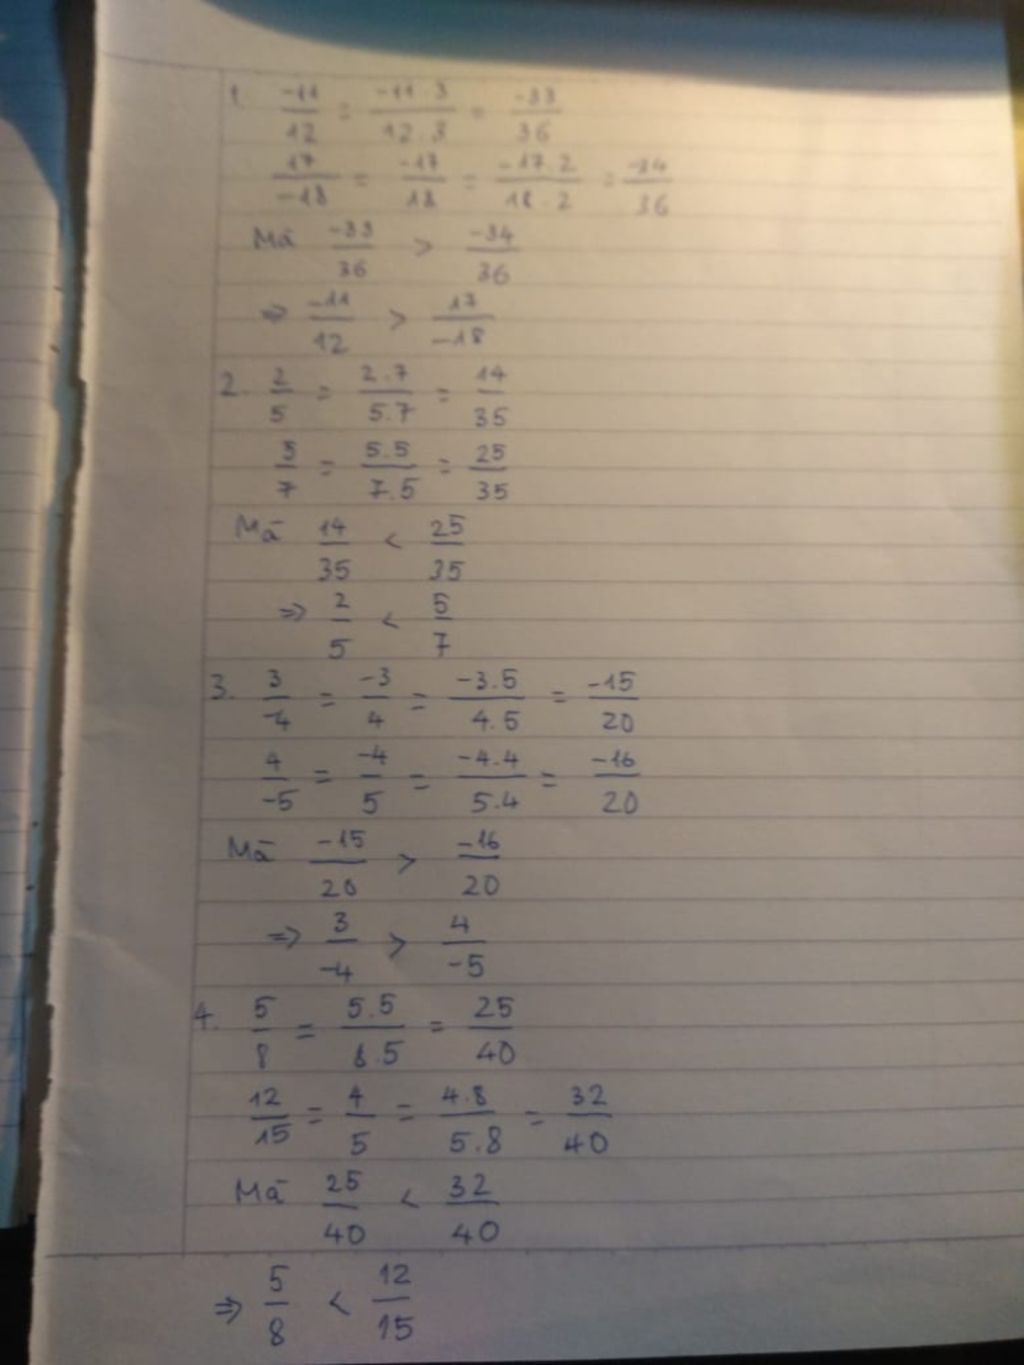 1. -11/12 = -11.3/12.3 = -33/36
17/-18 = -17/18 = -17.2/18.2 = -34/36
Mà -33/36 > -34/36
=> -11/12 > 17/-18
2. 2/5 = 2.7/5.7 = 14/35
5/7 = 5.5/7.5 = 25/35
Mà 14/35 < 25/35
=> 2/5 < 5/7
3. 3/-4 = -3/4 = -3.5/4.5 = -15/20
4/-5 = -4/5 = -4.4/5.4 = -16/20
Mà -15/20 > -16/20
=> 3/-4 > 4/-5
4. 5/8 = 5.5/8.5 = 25/40
12/15 = 4/5 = 4.8/5.8 = 32/40
Mà 25/40 < 32/40
=> 5/8 < 12/15